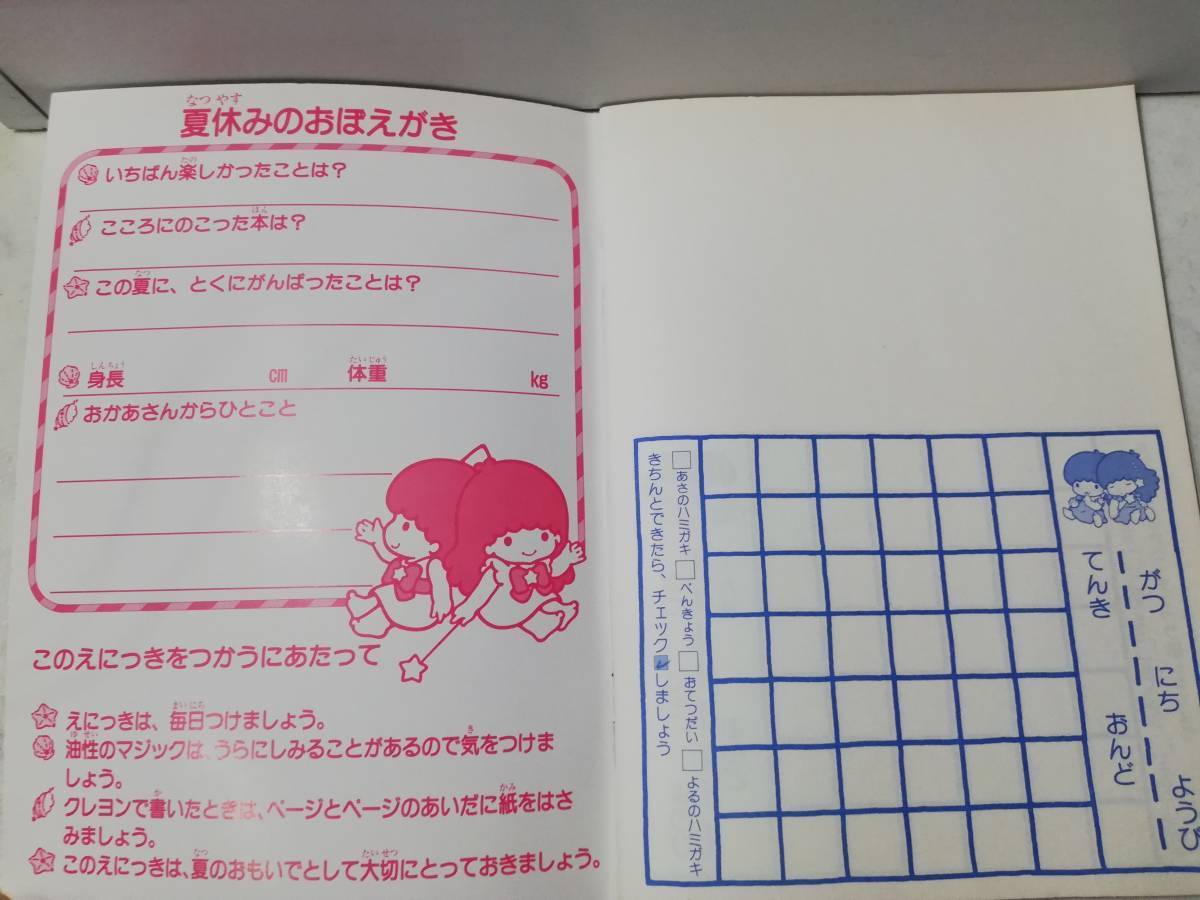 なつ やす
夏休みのおぼえがき
たの
いちばん楽しかったことは？
ほん
こころにのこった本は？
なつ
この夏に、とくにがんばったことは？
しんちょう たいじゅう
身長 cm 体重 kg
おかあさんからひとこと
このえにっきをつかうにあたって
まいにち
えにっきは、毎日つけましょう。
ゆせい き
油性のマジックは、うらにしみることがあるので気をつけま
しょう。
か かみ
クレヨンで書いたときは、ページとページのあいだに紙をはさ
みましょう。
なつ たいせつ
このえにっきは、夏のおもいでとして大切にとっておきましょう。
がつ にち ようび
てんき おんど
あさのハミガキ べんきょう おてつだい よるのハミガキ
きちんとできたら、チェックしましょう